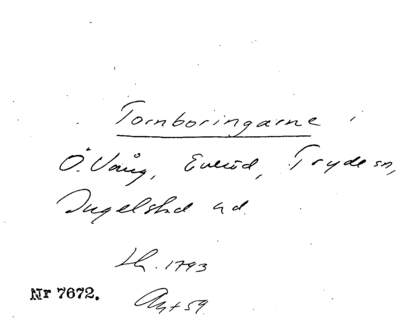 Tornboringarne
Ö. Vång, Everöd, Tryde sn,
Ingelstad hd.
Lh. 1793
Nr 7672.